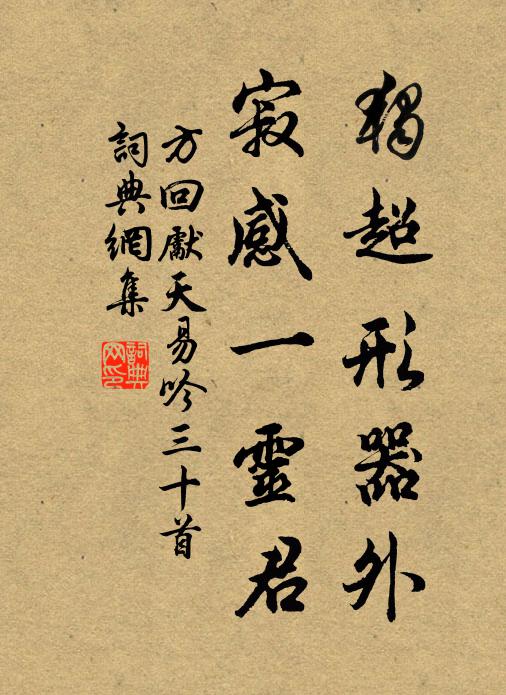 獨超形器外
寂感一靈君
方回獻天易吟三十首
詞典網集
詞典网印